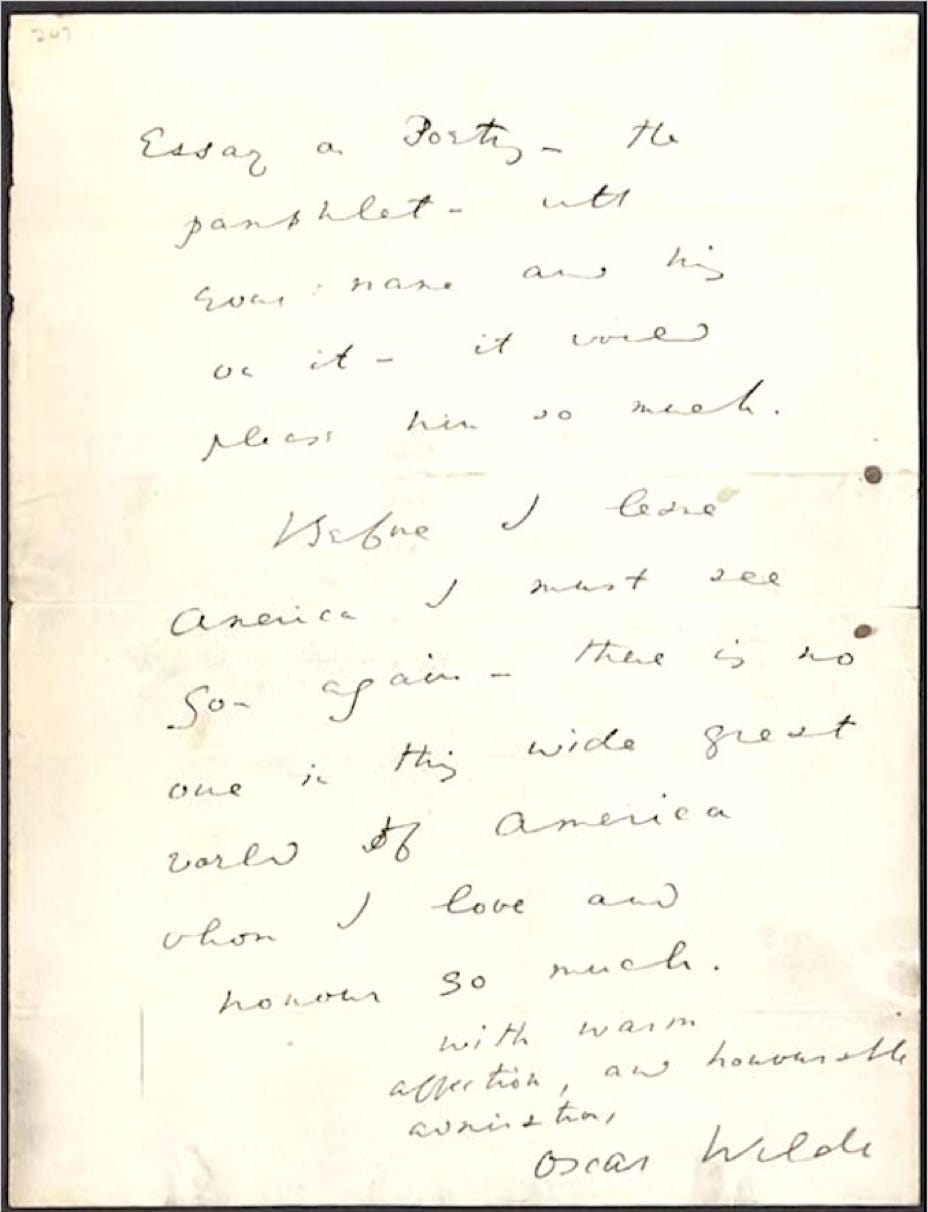 267
Essay on Poetry – the
pamphlet – with
your name and his
on it – it would
please him so much.
Before I leave
America I must see
you again – there is no
one in this wide great
world of America
whom I love and
honour so much.
With warm
affection, and honourable
admiration,
Oscar Wilde